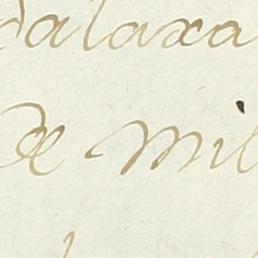 dalaxa
De mil